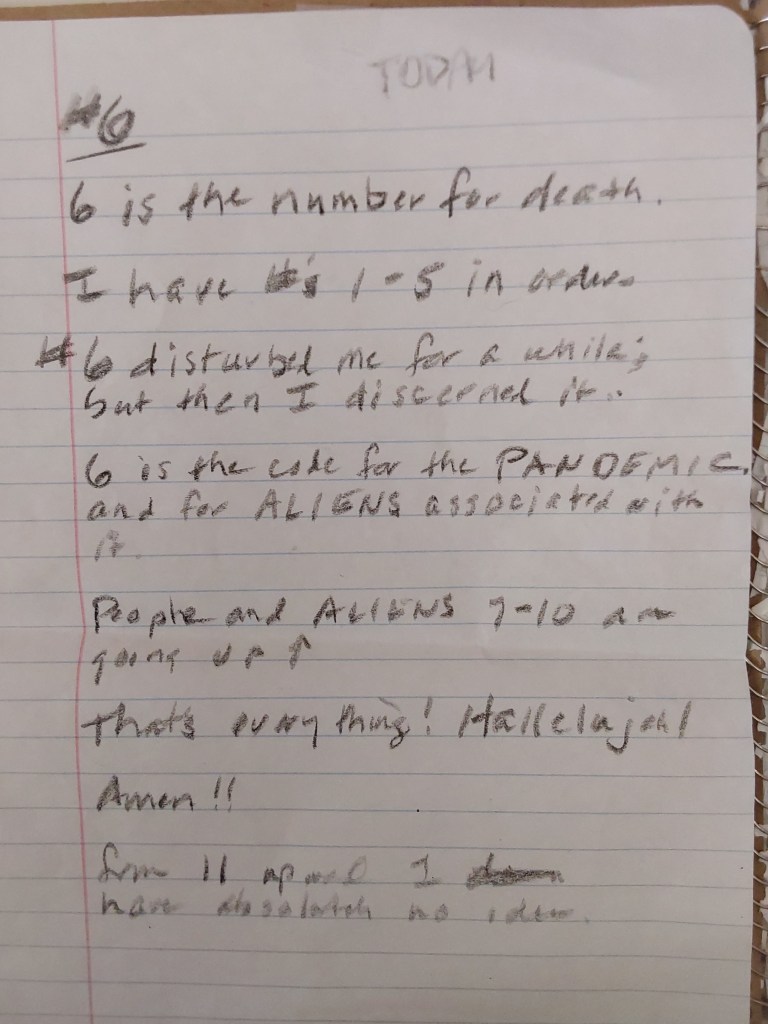 TODAY
#6
6 is the number for death.
I have #'s 1-5 in order.
#6 disturbed me for a while;
but then I discerned it..
6 is the code for the PANDEMIC.
and for ALIENS associated with
it.
People and ALIENS 7-10 are
going up ↑
That's everything! Hallelujah!
Amen!!
from 11 upward I
have absolutely no idea.